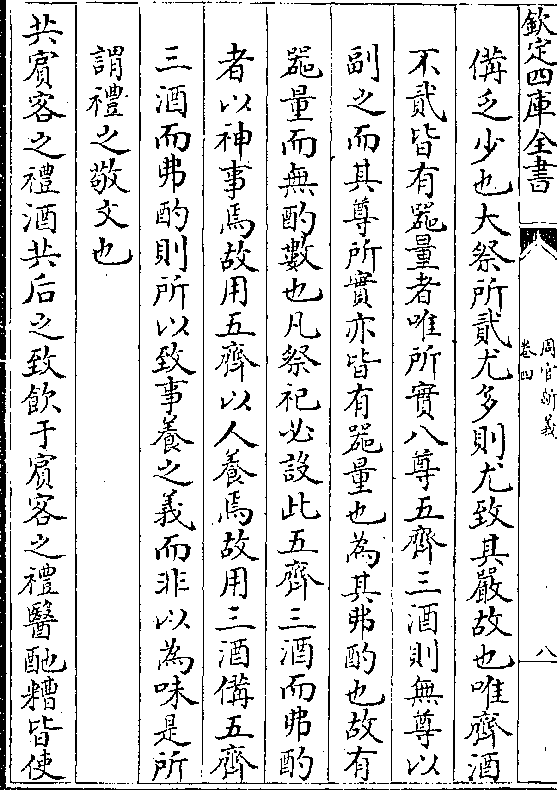 欽定四庫全書
周官新義
卷四
八
備乏少也大祭所貳尤多則尤致其嚴故也唯齊酒
不貳皆有器量者唯所實八尊五齊三酒則無尊以
副之而其尊所實亦皆有器量也為其弗酌也故有
器量而無酌數也凡祭祀必設此五齊三酒而弗酌
者以神事焉故用五齊以人養焉故用三酒備五齊
三酒而弗酌則所以致事養之義而非以為味是所
謂禮之敬文也
共賓客之禮酒共后之致飲于賓客之禮醫酏糟皆使